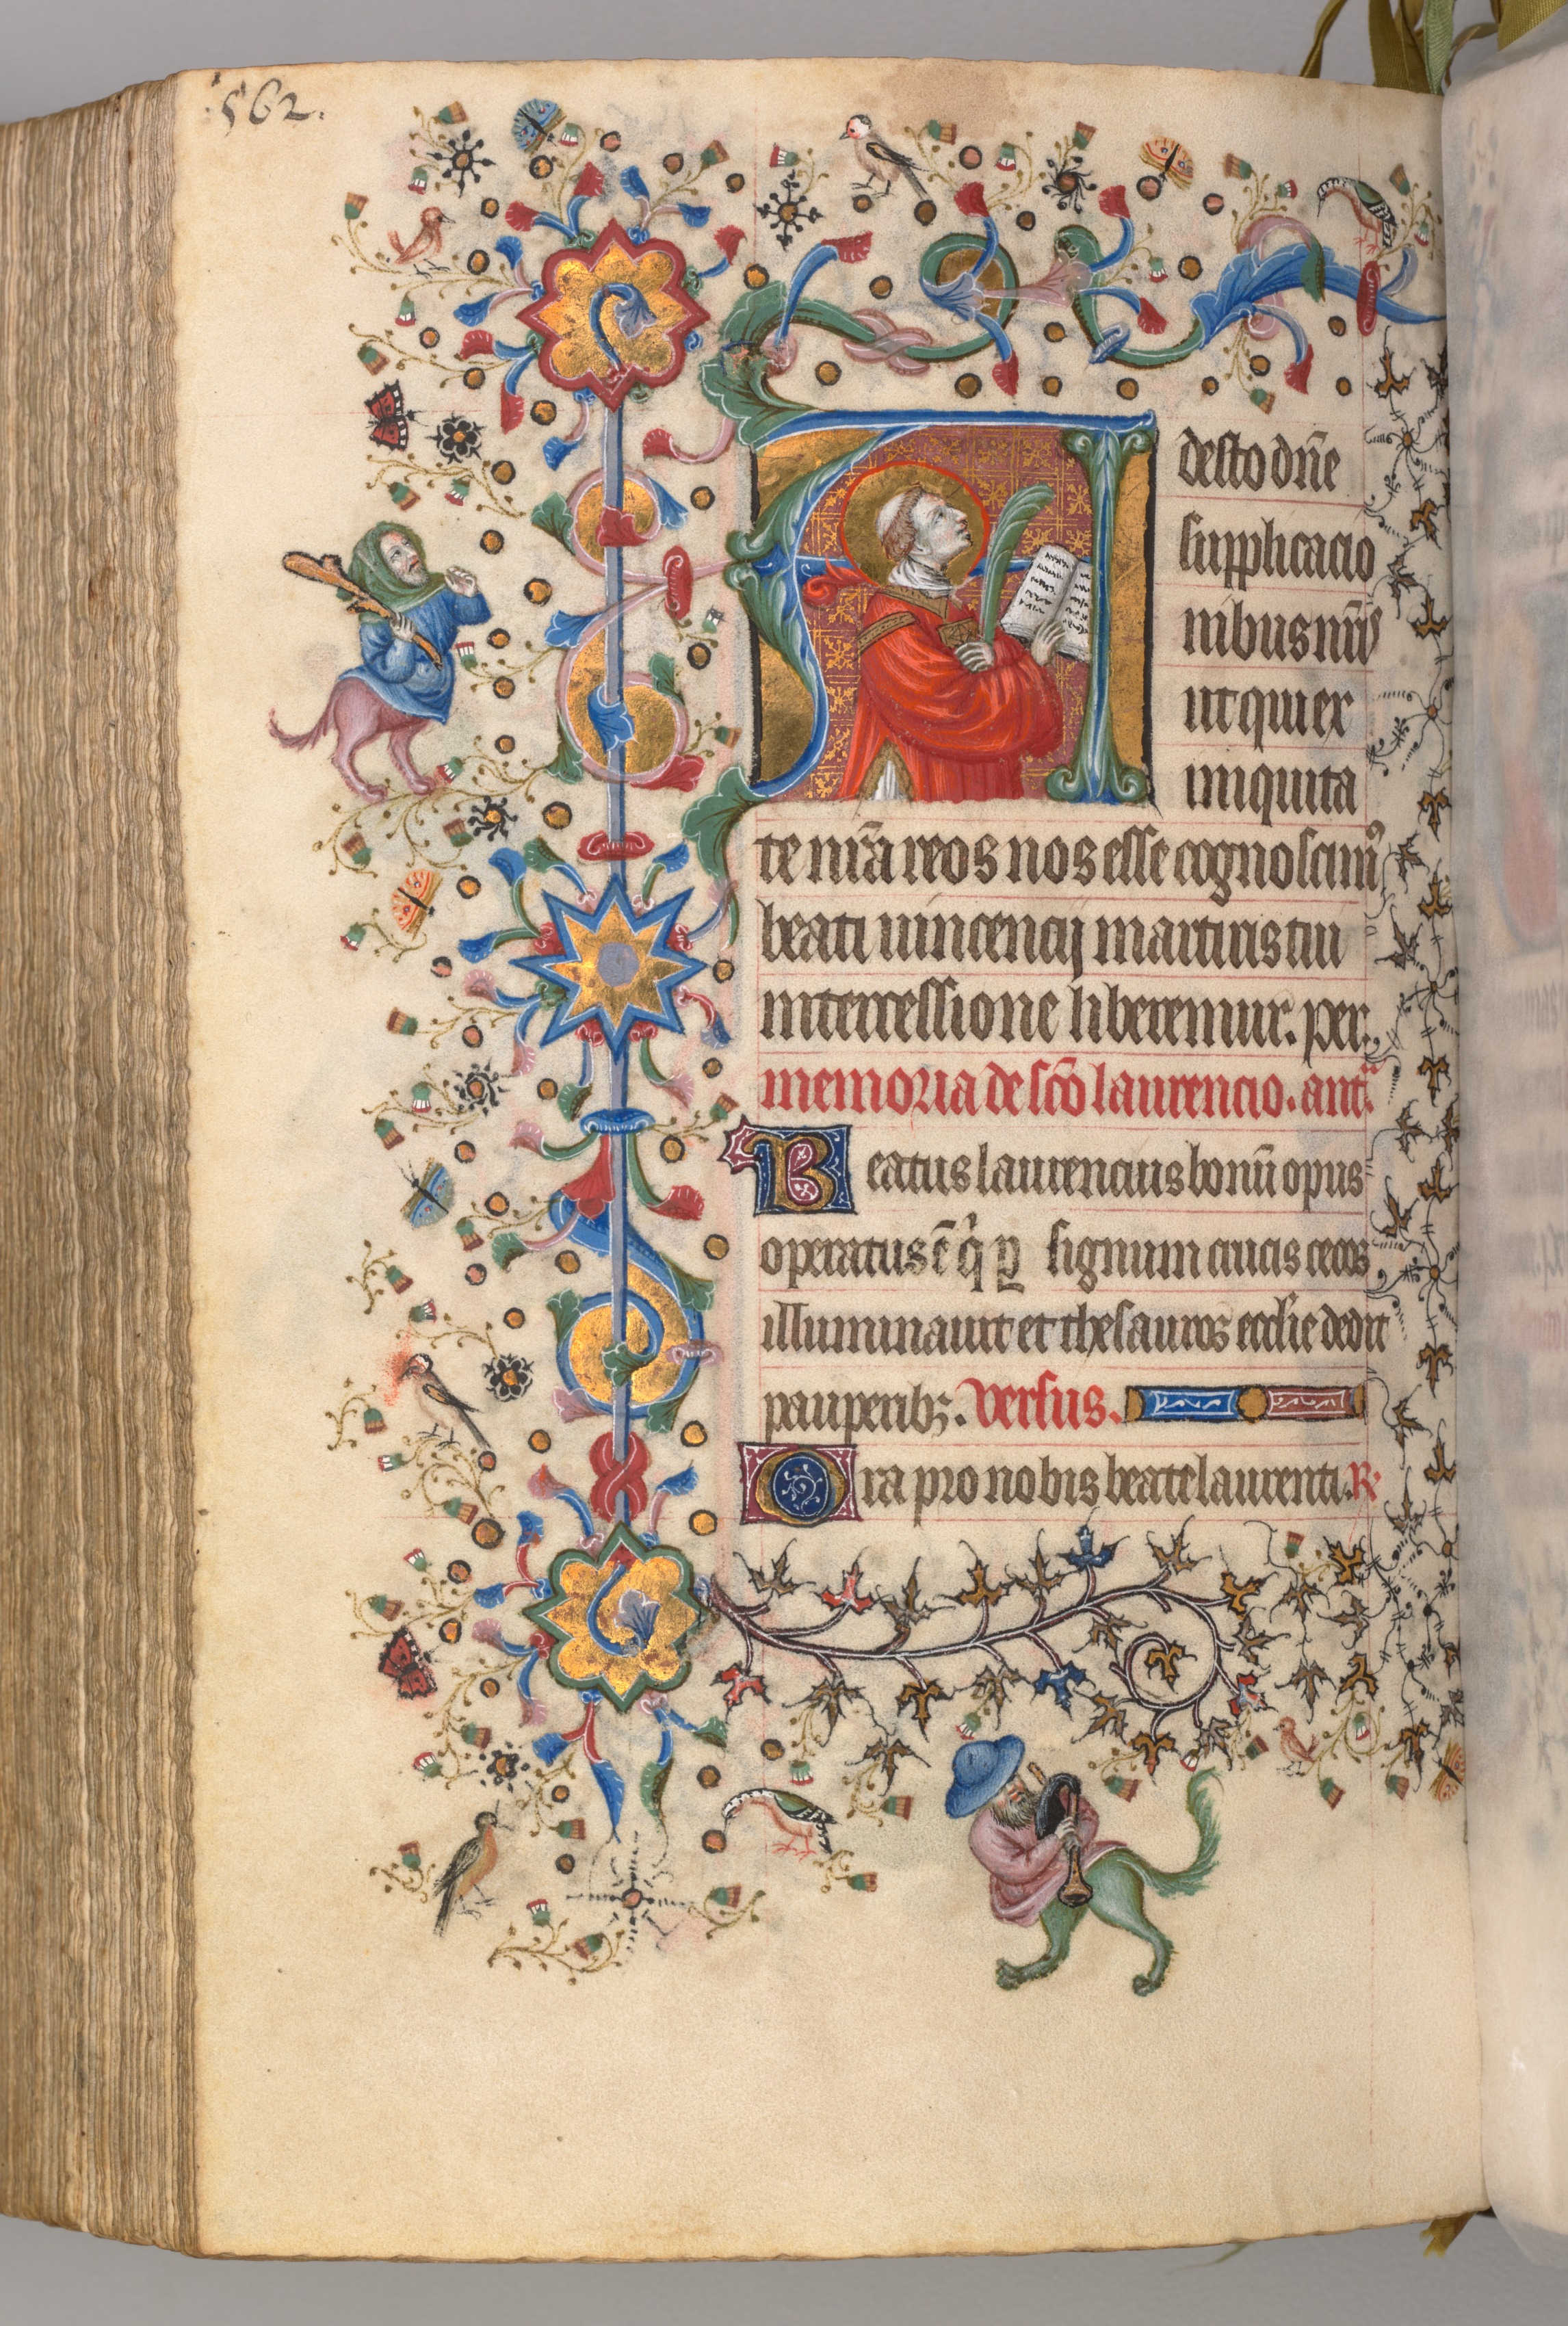 562.
Adesto dn̄e
supplicacio
nibus nr̄is
ut qui ex
iniquita
te nr̄a reos nos esse cognoscimꝰ
beati uincencij martiris tui
intercessione liberemur. per.
memoria de sc̄o laurencio. ant.
Beatus laurencius bonū opus
operatus ē q̇ ꝑ signum crucis cecos
illuminauit et thesauros ecclīe dedit
pauperibꝫ. versus.
Ora pro nobis beate laurenti. R.